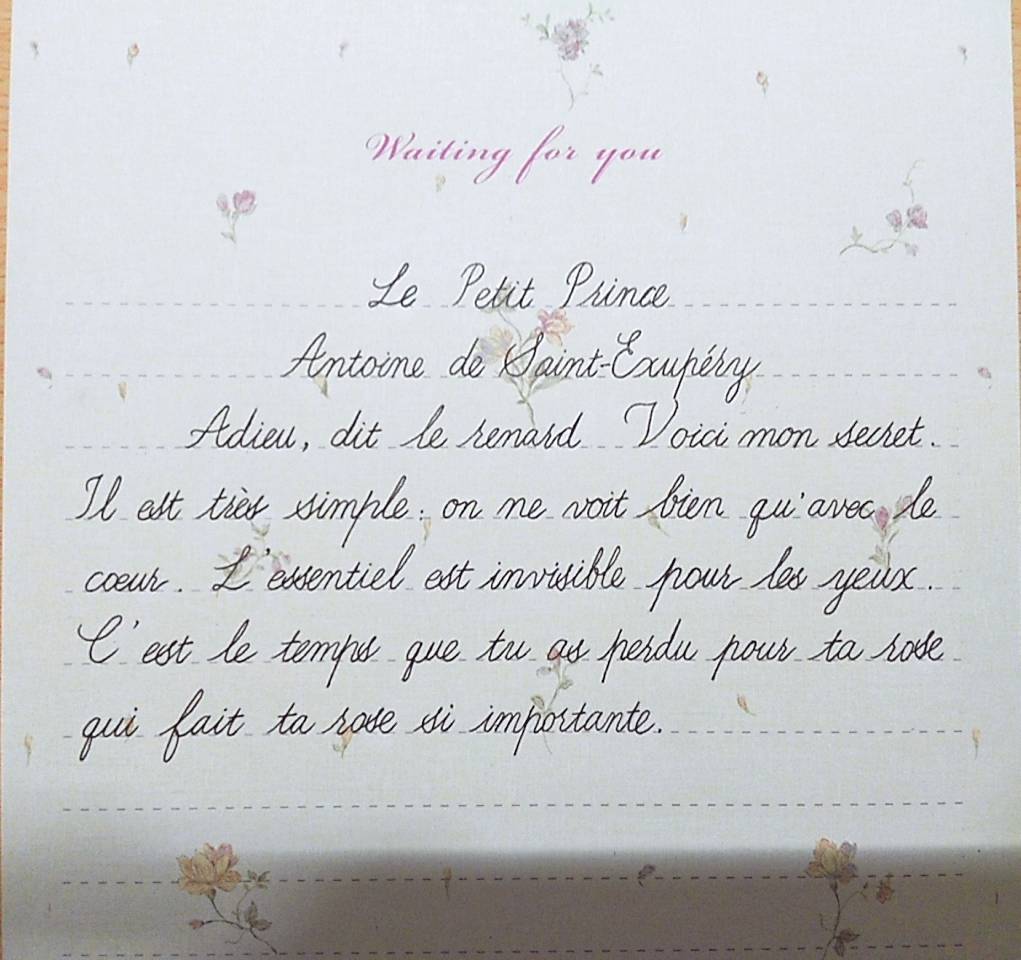 Waiting for you
Le Petit Prince
Antoine de Saint-Exupéry
Adieu, dit le renard Voici mon secret.
Il est très simple : on ne voit bien qu'avec le
cœur. L'essentiel est invisible pour les yeux.
C'est le temps que tu as perdu pour ta rose
qui fait ta rose si importante.